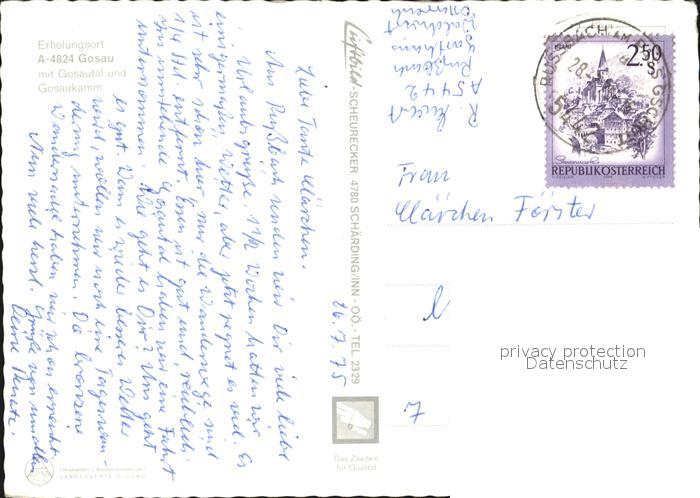 Erholungsort
A-4824 Gosau
mit Gosautal und
Gosaukamm
Liebe Tante Märchen.
Aus Rußbach senden wir Dir viele liebe
Urlaubsgrüße. 1 1/2 Wochen hatten wir
einigermaßen Wetter, aber jetzt regnet es viel. Es
ist sehr schön hier nur die Wanderwege sind
1/4 Std. entfernt. Essen ist gut und reichlich.
ins umliebende Gosautal haben wir eine Fahrt
unternommen. Wie geht es Dir? Uns geht
es gut. Wenn es wieder besseres Wetter
wird, wollen wir noch eine Tageswan-
derung unternehmen. Die
Wandernadel haben wir schon
Nun viele herzl. Grüße von uns allen
Deine Renate.
26.7.75
Luftbild-SCHEURECKER 4780 SCHÄRDING/INN - OÖ. - TEL. 2329
Das Zeichen
für Qualität
LANDESVERTEIDIGUNG
R.
A 5442
Rußbach
Gasthaus
Österreich
2,50 S
REPUBLIK ÖSTERREICH
Frau
Märchen Förster
7
privacy protection
Datenschutz